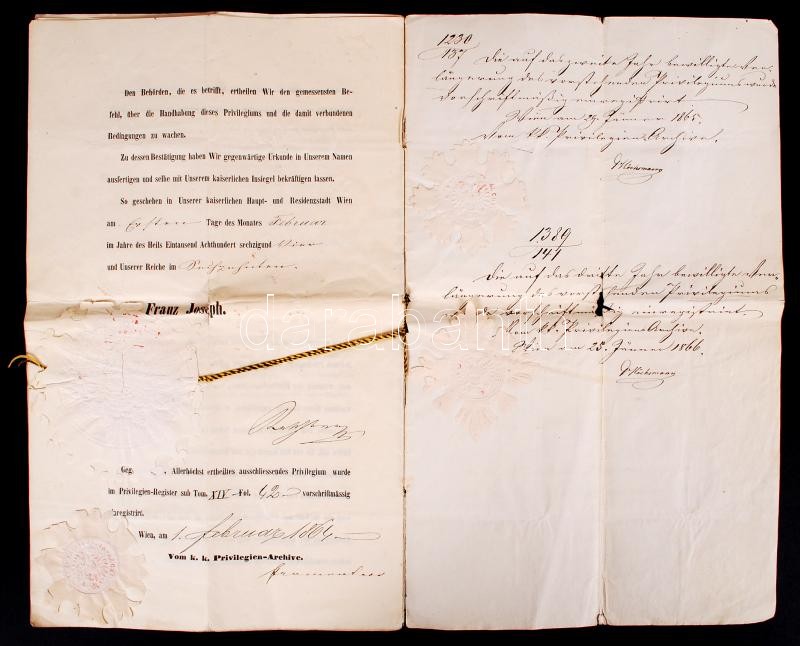 Den Behörden, die es betrifft, ertheilen Wir den gemessensten Be-
fehl, über die Handhabung dieses Privilegiums und die damit verbundenen
Bedingungen zu wachen.
Zu dessen Bestätigung haben Wir gegenwärtige Urkunde in Unserem Namen
ausfertigen und selbe mit Unserem kaiserlichen Insiegel bekräftigen lassen.
So geschehen in Unserer kaiserlichen Haupt- und Residenzstadt Wien
am Ersten Tage des Monates Februar
im Jahre des Heils Eintausend Achthundert sechzigund Vier
und Unserer Reiche im Sechzehnten.
Franz Joseph.
Geg. Allerhöchst ertheiltes ausschliessendes Privilegium wurde
im Privilegien-Register sub Tom. XIV Fol. 42 vorschriftmässig
registrirt.
Wien, am 1. Februar 1864
Vom k. k. Privilegien-Archive.
1230
137
Die auf das zweite Jahr bewilligte Ver-
längerung des vorstehenden Privilegiums wurde
vorschriftmäßig einregistrirt.
Wien am 29. Jänner 1865.
Vom kk Privilegien Archive.
1389
141
Die auf das dritte Jahr bewilligte Ver-
längerung des vorstehenden Privilegiums
wurde vorschriftmäßig einregistriert.
Vom kk. Privilegien Archive.
Wien am 25. Jänner 1866.
darabanth